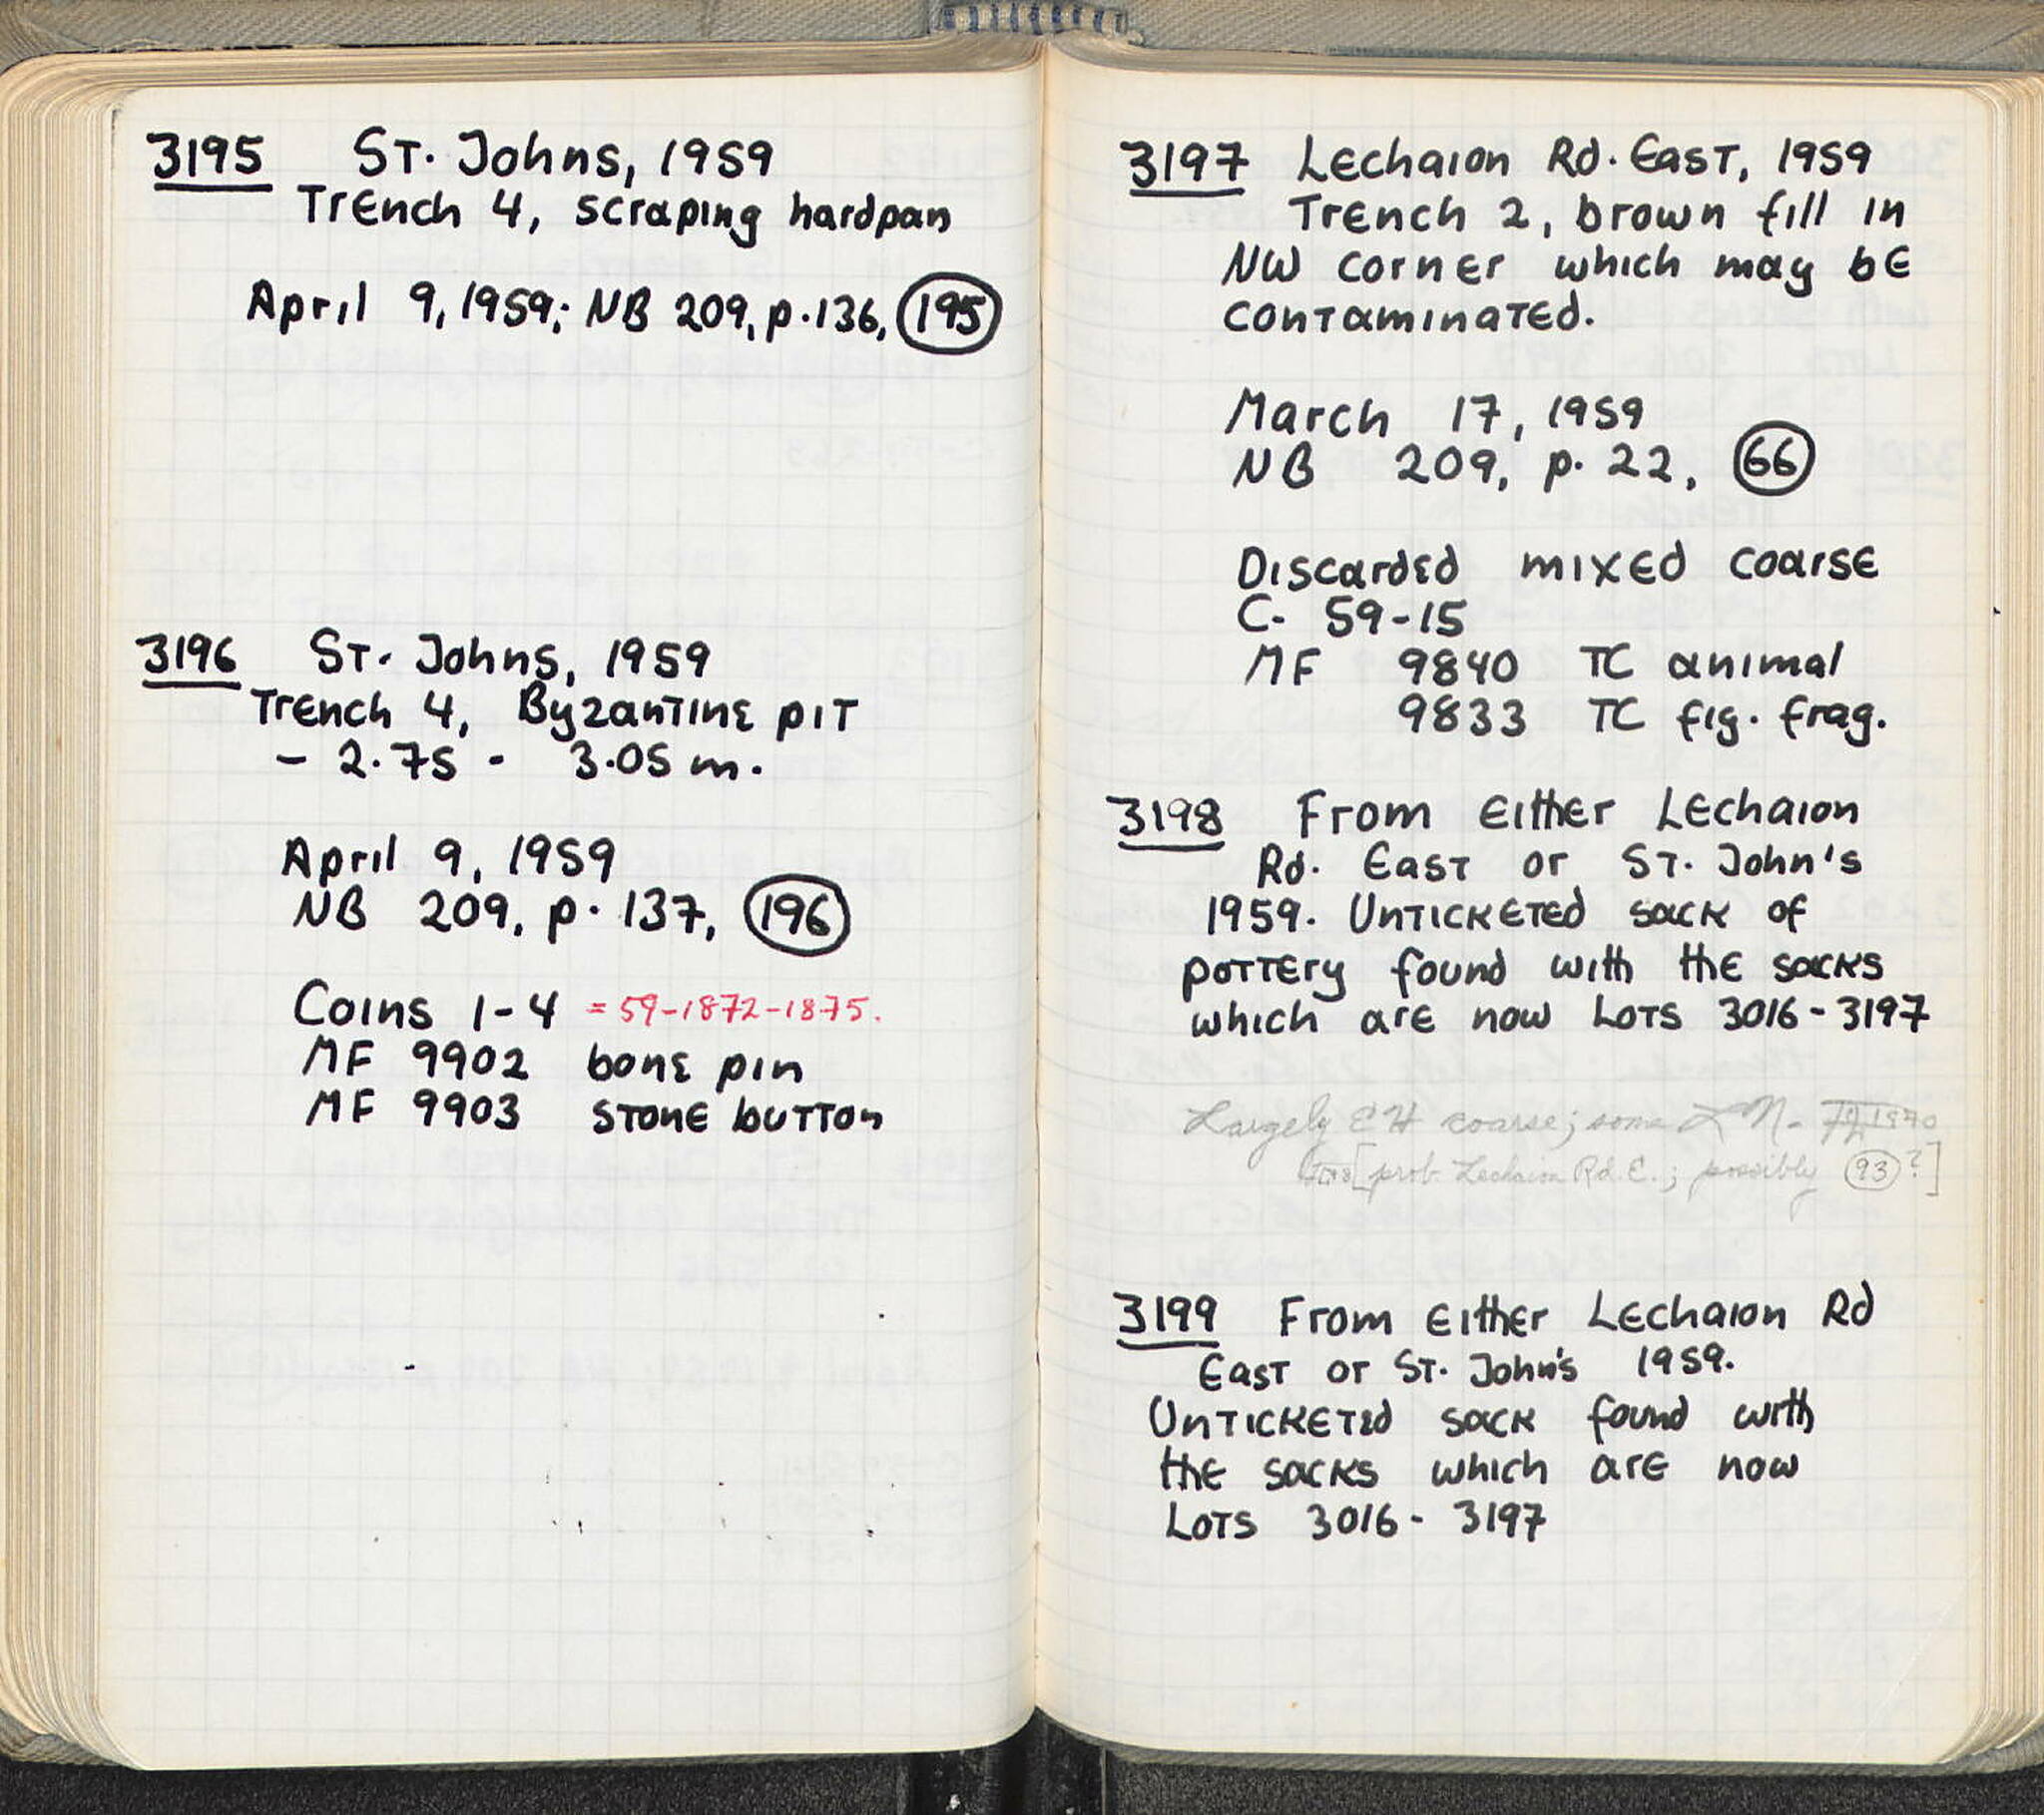 3195 St. Johns, 1959
Trench 4, scraping hardpan
April 9, 1959; NB 209, p. 136, 195
3196 St. Johns, 1959
Trench 4, Byzantine pit
- 2.75 - 3.05 m.
April 9, 1959
NB 209, p. 137, 196
Coins 1-4 = 59-1872-1875.
MF 9902 bone pin
MF 9903 stone button
3197 Lechaion Rd. East, 1959
Trench 2, brown fill in
NW corner which may be
contaminated.
March 17, 1959
NB 209, p. 22, 66
Discarded mixed coarse
C- 59-15
MF 9840 TC animal
9833 TC fig. frag.
3198 From either Lechaion
Rd. East or St. John's
1959. Unticketed sack of
pottery found with the sacks
which are now Lots 3016-3197
Largely EH coarse; some LN- 1970
[prob. Lechaion Rd. E.; possibly 93?]
3199 From either Lechaion Rd
East or St. John's 1959.
Unticketed sack found with
the sacks which are now
Lots 3016- 3197